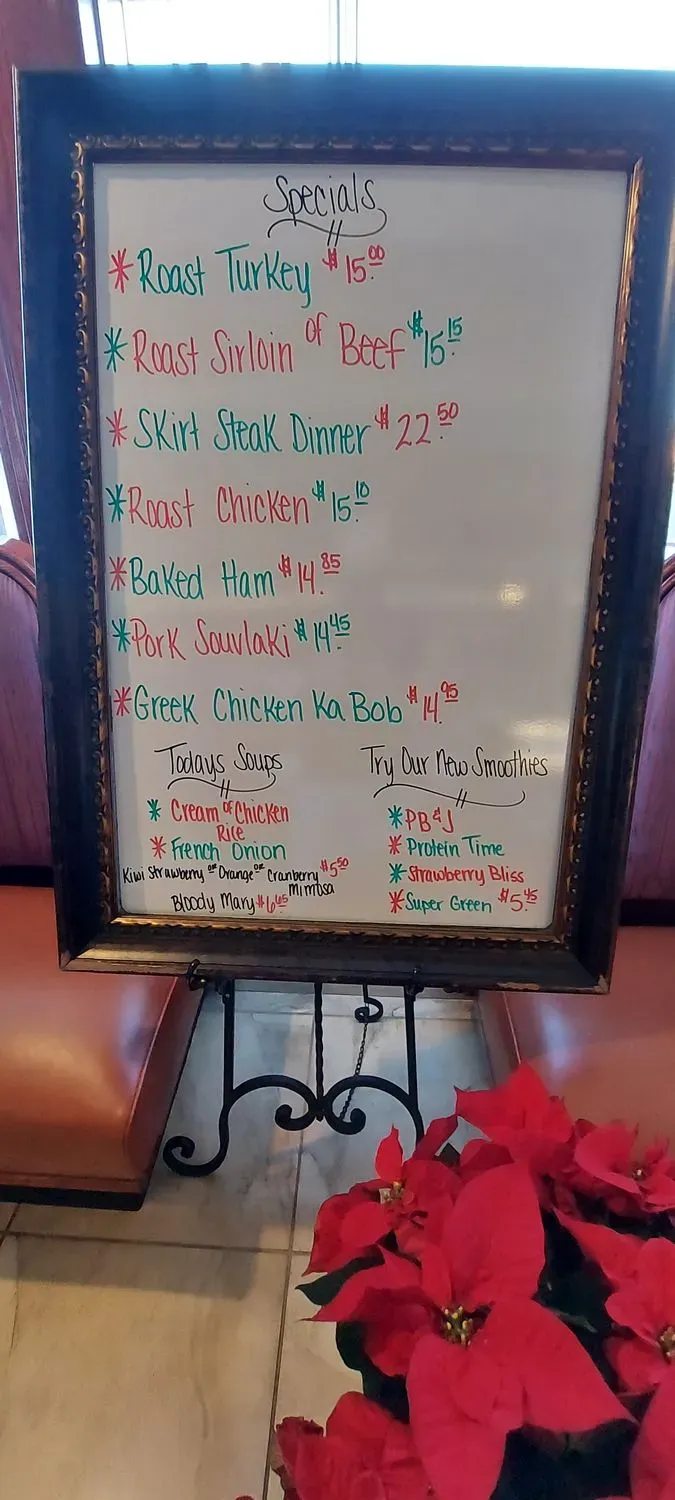 Specials
* Roast Turkey $15.00
* Roast Sirloin of Beef $15.15
* Skirt Steak Dinner $22.50
* Roast Chicken $15.10
* Baked Ham $14.85
* Pork Souvlaki $14.45
* Greek Chicken Ka Bob $14.95
Todays Soups
* Cream of Chicken
Rice
* French Onion
Kiwi Strawberry or Orange or Cranberry $5.50
Mimosa
Bloody Mary $6.45
Try Our New Smoothies
* PB & J
* Protein Time
* Strawberry Bliss
* Super Green $5.45